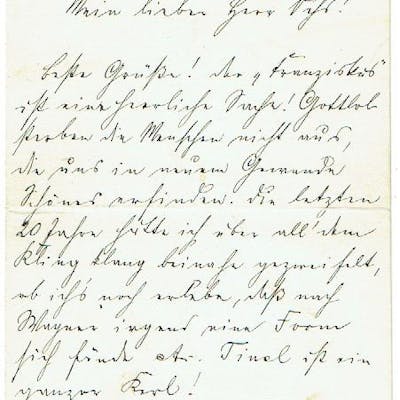 Mein lieber Herr Ochs!
Beste Grüße! Der „Franziskus"
ist eine herrliche Sache! Gottlob
sterben die Menschen nicht aus,
die uns in neuem Gewande
Schönes erfinden. Die letzten
20 Jahre hätte ich über all' dem
Kling klang beinahe gezweifelt,
ob ich's noch erlebe, daß nach
Wagner irgend eine Form
sich fände etc. Tinel ist ein
ganzer Kerl!